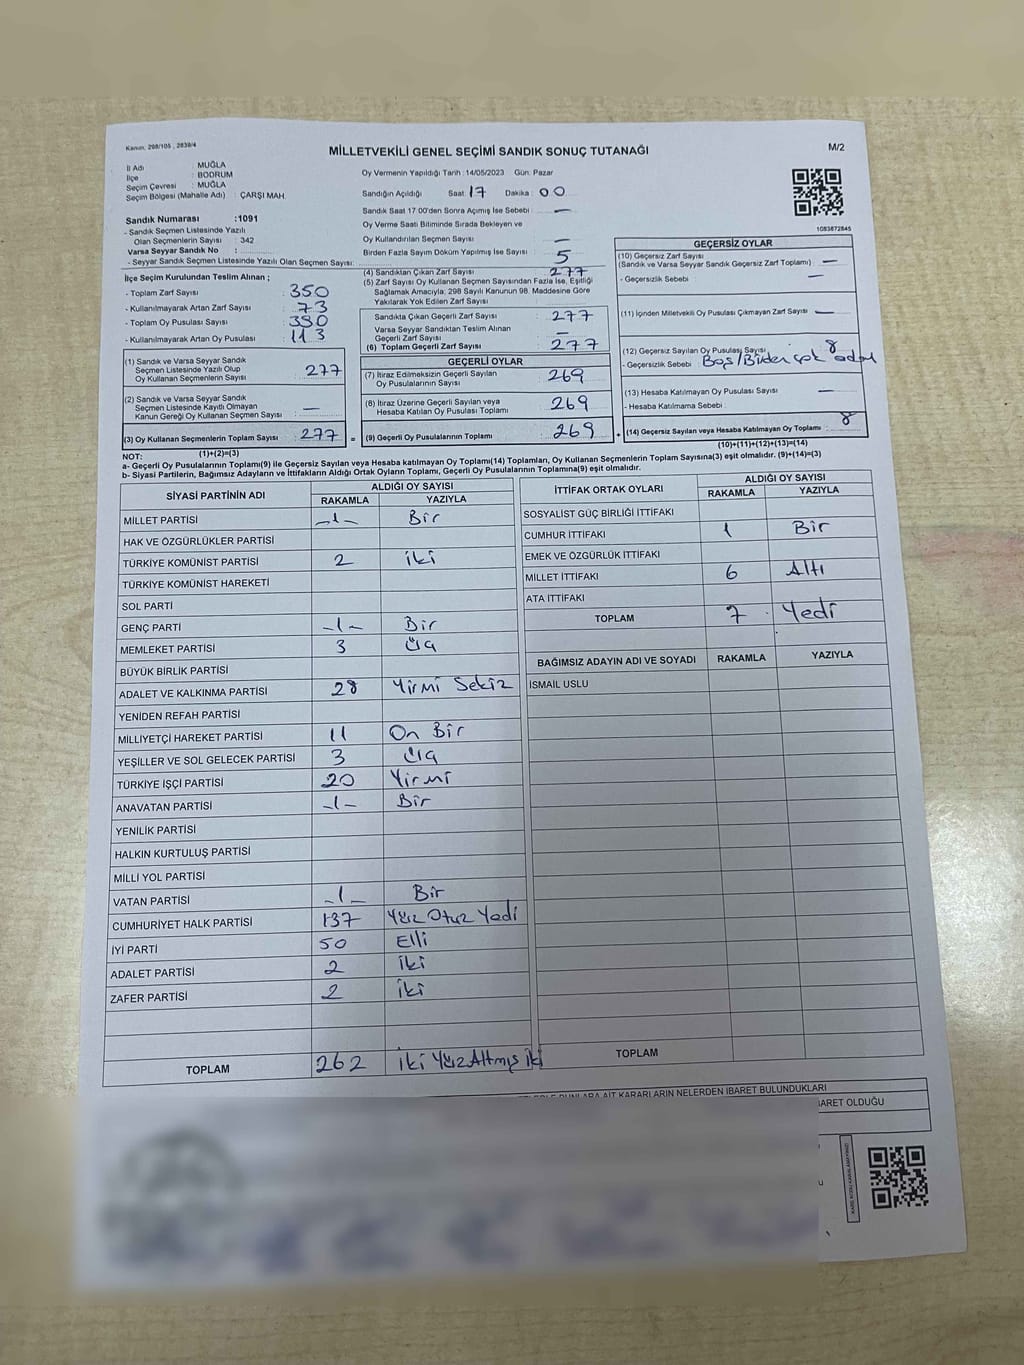 Kanun, 298/105 , 2839/4
MİLLETVEKİLİ GENEL SEÇİMİ SANDIK SONUÇ TUTANAĞI
M/2
İl Adı : MUĞLA
İlçe : BODRUM
Seçim Çevresi : MUĞLA
Seçim Bölgesi (Mahalle Adı) : ÇARŞI MAH.
Sandık Numarası :1091
- Sandık Seçmen Listesinde Yazılı
Olan Seçmenlerin Sayısı : 342
Varsa Seyyar Sandık No :
- Seyyar Sandık Seçmen Listesinde Yazılı Olan Seçmen Sayısı:
Oy Vermenin Yapıldığı Tarih : 14/05/2023 Gün: Pazar
Sandığın Açıldığı Saat : 17 Dakika : 00
Sandık Saat 17:00'den Sonra Açımış İse Sebebi : —
Oy Verme Saati Bitiminde Sırada Bekleyen ve
Oy Kullandırılan Seçmen Sayısı : —
Birden Fazla Sayım Döküm Yapılmış İse Sayısı : 5
1083872845
İlçe Seçim Kurulundan Teslim Alınan ;
- Toplam Zarf Sayısı : 350
- Kullanılmayarak Artan Zarf Sayısı : 73
- Toplam Oy Pusulası Sayısı :
- Kullanılmayarak Artan Oy Pusulası : 113
(1) Sandık ve Varsa Seyyar Sandık
Seçmen Listesinde Yazılı Olup
Oy Kullanan Seçmenlerin Sayısı : 277
(2) Sandık ve Varsa Seyyar Sandık
Seçmen Listesinde Kayıtlı Olmayan
Kanun Gereği Oy Kullanan Seçmen Sayısı : —
(3) Oy Kullanan Seçmenlerin Toplam Sayısı : 277 =
(1)+(2)=(3)
(4) Sandıktan Çıkan Zarf Sayısı : 277
(5) Zarf Sayısı Oy Kullanan Seçmen Sayısından Fazla İse, Eşitliği
Sağlamak Amacıyla; 298 Sayılı Kanunun 98. Maddesine Göre
Yakılarak Yok Edilen Zarf Sayısı :
Sandıkta Çıkan Geçerli Zarf Sayısı : 277
Varsa Seyyar Sandıktan Teslim Alınan
Geçerli Zarf Sayısı : —
(6) Toplam Geçerli Zarf Sayısı : 277
GEÇERLİ OYLAR
(7) İtiraz Edilmeksizin Geçerli Sayılan
Oy Pusulalarının Sayısı : 269
(8) İtiraz Üzerine Geçerli Sayılan veya
Hesaba Katılan Oy Pusulası Toplamı : 269
(9) Geçerli Oy Pusulalarının Toplamı : 269 +
GEÇERSİZ OYLAR
(10) Geçersiz Zarf Sayısı
(Sandık ve Varsa Seyyar Sandık Geçersiz Zarf Toplamı) : —
- Geçersizlik Sebebi : —
(11) İçinden Milletvekili Oy Pusulası Çıkmayan Zarf Sayısı : —
(12) Geçersiz Sayılan Oy Pusulası Sayısı : 8
- Geçersizlik Sebebi : Boş/Birden çok
(13) Hesaba Katılmayan Oy Pusulası Sayısı : —
- Hesaba Katılmama Sebebi :
(14) Geçersiz Sayılan veya Hesaba Katılmayan Oy Toplamı : 8
(10)+(11)+(12)+(13)=(14)
NOT:
a- Geçerli Oy Pusulalarının Toplamı(9) ile Geçersiz Sayılan veya Hesaba katılmayan Oy Toplamı(14) Toplamları, Oy Kullanan Seçmenlerin Toplam Sayısına(3) eşit olmalıdır. (9)+(14)=(3)
b- Siyasi Partilerin, Bağımsız Adayların ve İttifakların Aldığı Ortak Oyların Toplamı, Geçerli Oy Pusulalarının Toplamına(9) eşit olmalıdır.
SİYASİ PARTİNİN ADI ALDIĞI OY SAYISI
RAKAMLA YAZIYLA
MİLLET PARTİSİ -1- Bir
HAK VE ÖZGÜRLÜKLER PARTİSİ
TÜRKİYE KOMÜNİST PARTİSİ 2 iki
TÜRKİYE KOMÜNİST HAREKETİ
SOL PARTİ
GENÇ PARTİ -1- Bir
MEMLEKET PARTİSİ 3 üç
BÜYÜK BİRLİK PARTİSİ
ADALET VE KALKINMA PARTİSİ 28 Yirmi Sekiz
YENİDEN REFAH PARTİSİ
MİLLİYETÇİ HAREKET PARTİSİ 11 On Bir
YEŞİLLER VE SOL GELECEK PARTİSİ 3 üç
TÜRKİYE İŞÇİ PARTİSİ 20 Yirmi
ANAVATAN PARTİSİ -1- Bir
YENİLİK PARTİSİ
HALKIN KURTULUŞ PARTİSİ
MİLLİ YOL PARTİSİ
VATAN PARTİSİ -1- Bir
CUMHURİYET HALK PARTİSİ 137 Yüz Otuz Yedi
İYİ PARTİ 50 Elli
ADALET PARTİSİ 2 iki
ZAFER PARTİSİ 2 iki
TOPLAM 262 iki Yüz Altmış iki
İTTİFAK ORTAK OYLARI ALDIĞI OY SAYISI
RAKAMLA YAZIYLA
SOSYALİST GÜÇ BİRLİĞİ İTTİFAKI
CUMHUR İTTİFAKI 1 Bir
EMEK VE ÖZGÜRLÜK İTTİFAKI
MİLLET İTTİFAKI 6 Altı
ATA İTTİFAKI
TOPLAM 7 Yedi
BAĞIMSIZ ADAYIN ADI VE SOYADI RAKAMLA YAZIYLA
İSMAİL USLU
TOPLAM
AİT KARARLARIN NELERDEN İBARET BULUNDUKLARI
OLDUĞU